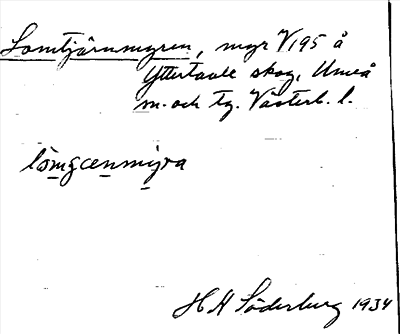 Lomtjärnmyren, myr V195 å
Yttertavle skog, Umeå
m. och tg. Västerb. l.
lömgcenmyra
H H Söderburg 1934